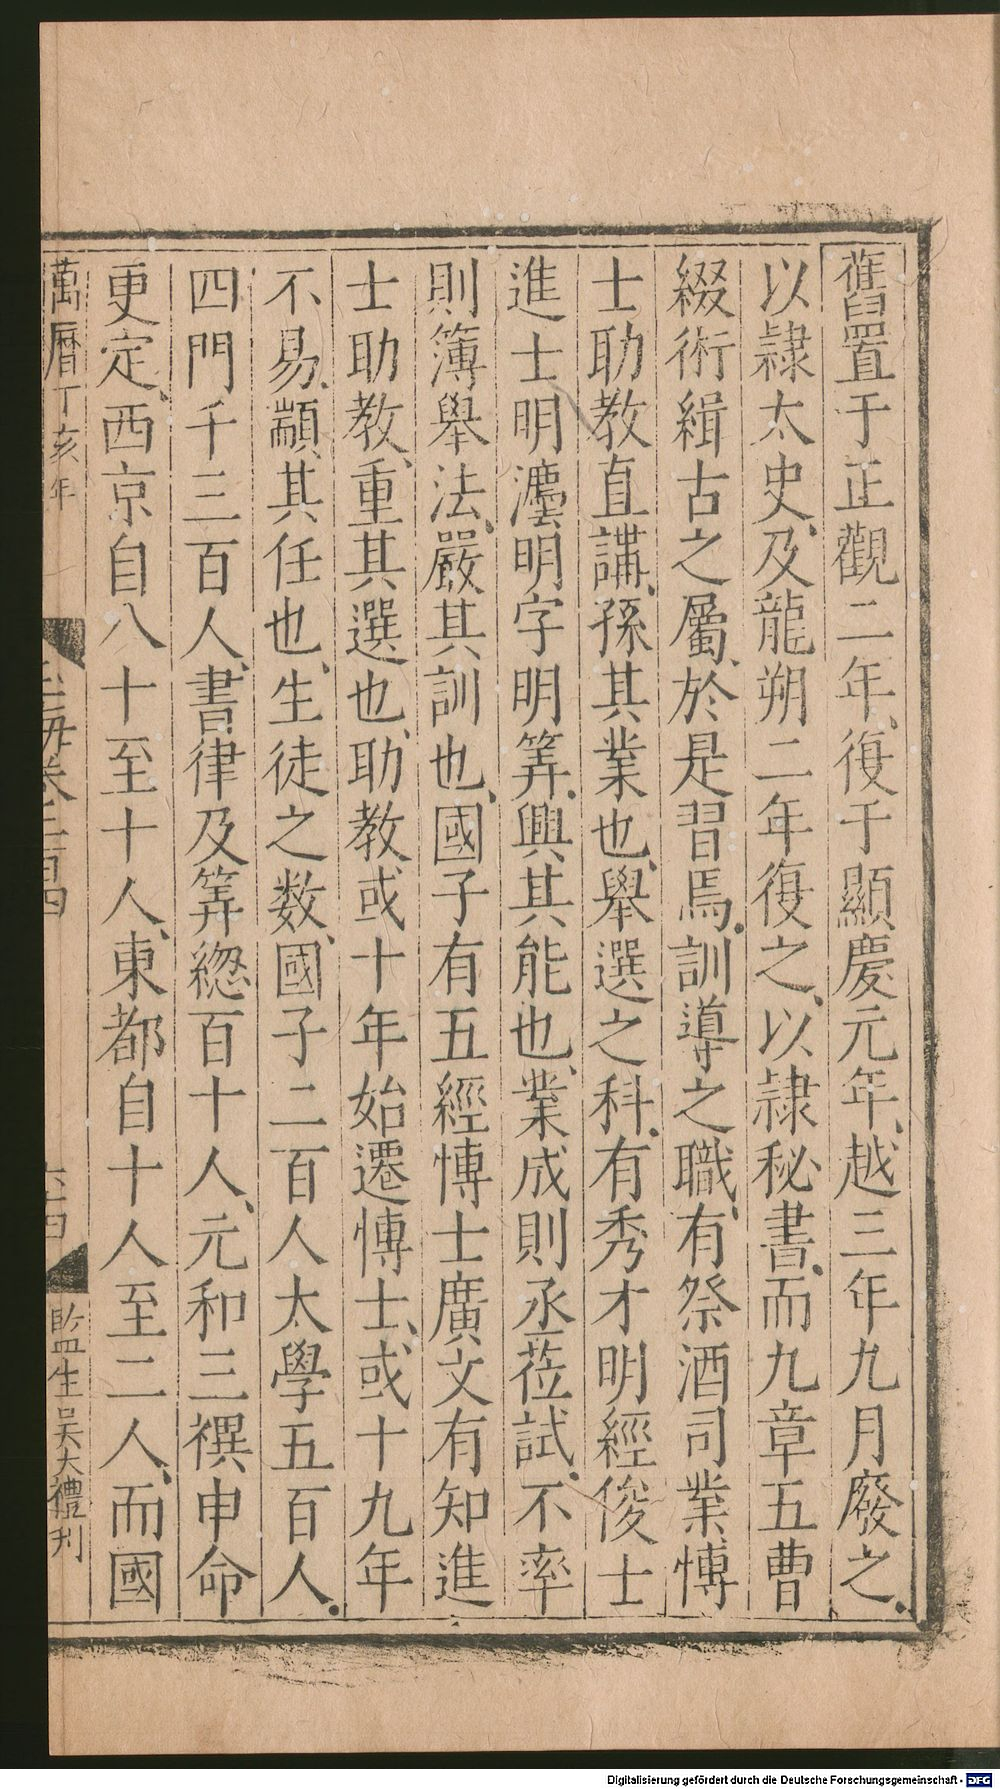 舊置于正觀二年、復于顯慶元年、越三年九月廢之、
以隷太史、及龍朔二年復之、以隷秘書、而九章五曹
綴術緝古之屬、於是習焉、訓導之職、有祭酒司業愽
士助教直講、孫其業也、舉選之科、有秀才明經俊士
進士明灋明字明筭、興其能也、業成則丞莅試、不率
則簿舉法、嚴其訓也、國子有五經愽士廣文有知進
士助教、重其選也、助教或十年始遷愽士、或十九年
不易、顓其任也、生徒之数、國子二百人太學五百人、
四門千三百人、書律及筭緫百十人、元和三禩申命
更定、西京自八十至十人、東都自十人至二人、而國
萬曆丁亥年
玉海卷
監生吳大禮刊
Digitalisierung gefördert durch die Deutsche Forschungsgemeinschaft - DFG